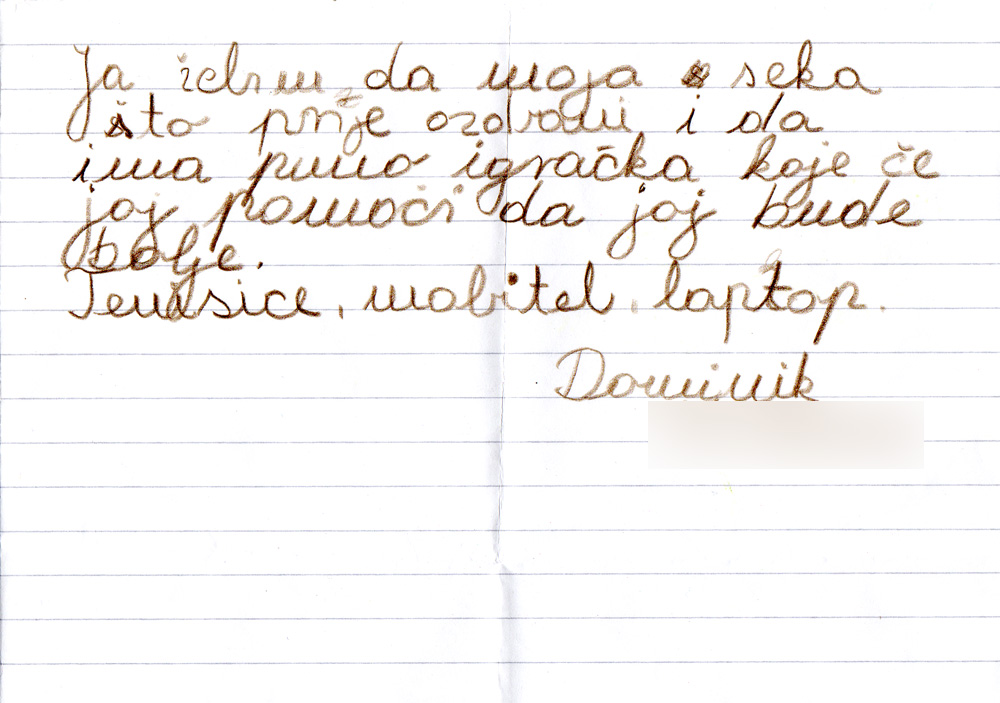 Ja da moja seka
što prije ozdravi i da
ima puno igračka koje če
joj pomoći da joj bude
bolje.
Tenisice, mobitel, laptop.
Dominik